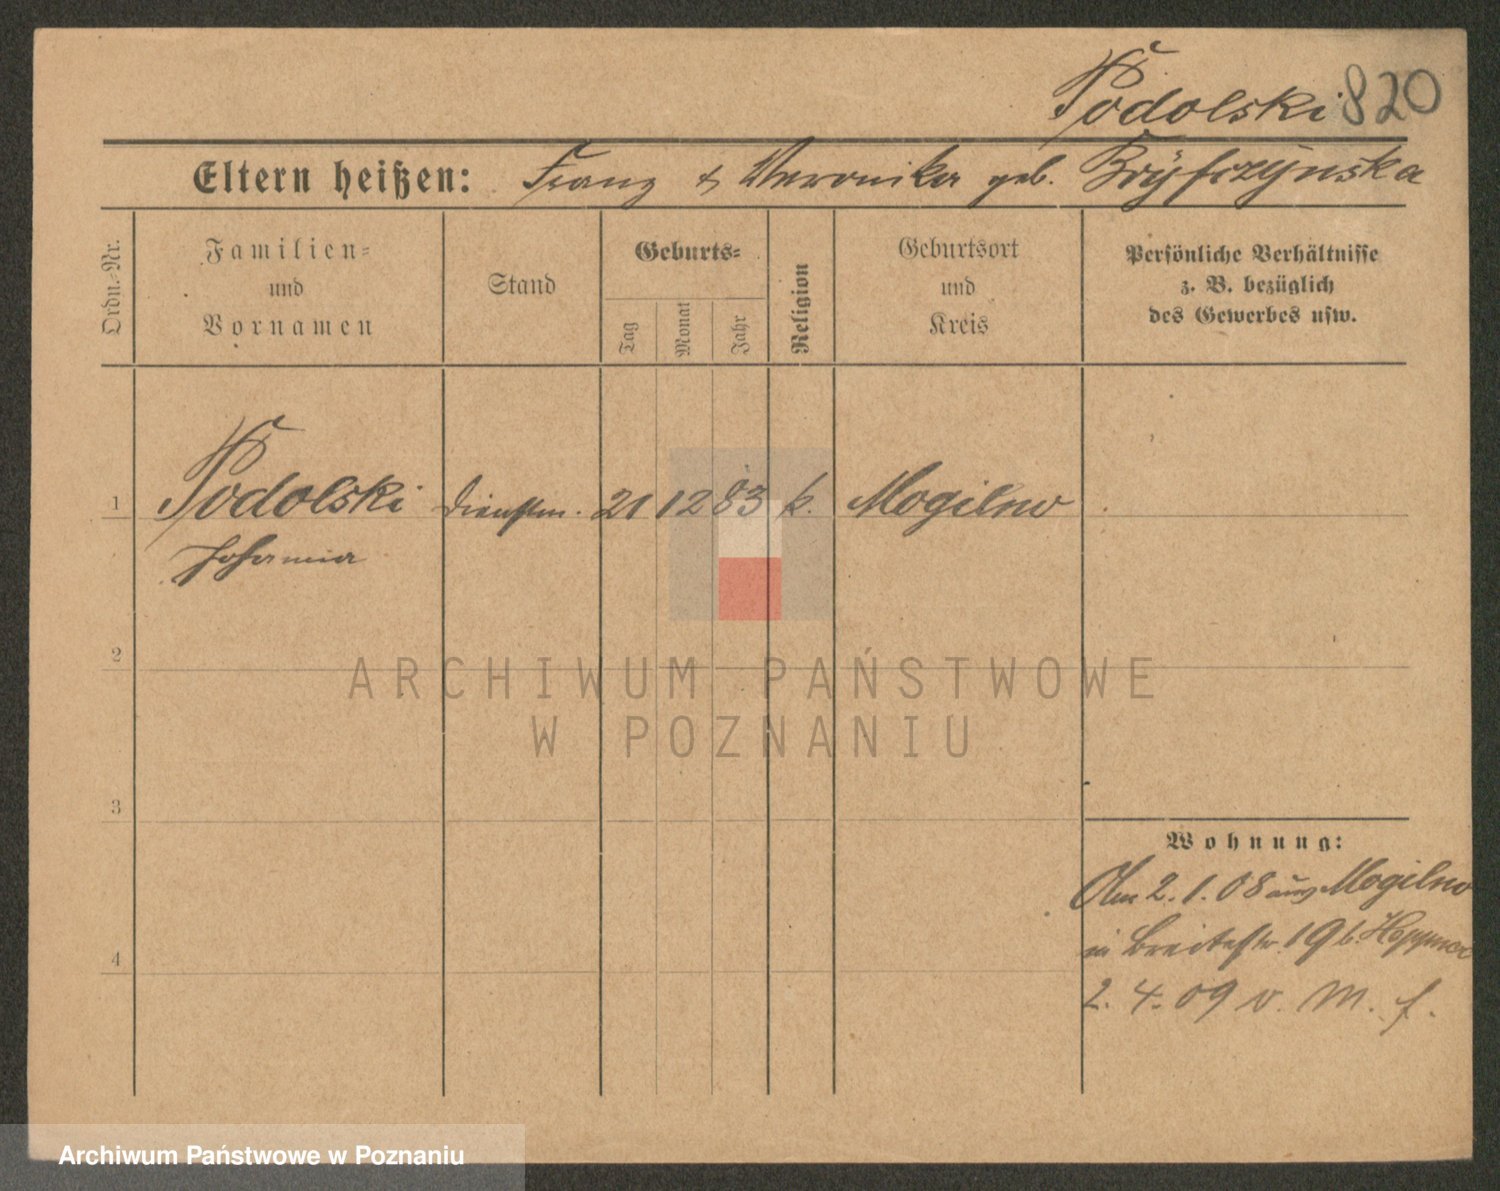 Podolski 820
Eltern heißen: Franz & Veronika geb.
Ordn.-Nr.
Familien-
und
Vornamen
Stand
Geburts-
Tag
Monat
Jahr
Religion
Geburtsort
und
Kreis
Persönliche Verhältnisse
z. B. bezüglich
des Gewerbes usw.
1 Podolski Dienstm. 21 12 83 k. Mogilno
Johanna
2
3
4
Wohnung:
Am 2.1.08 aus Mogilno
in Breitestr. 19 b.
2.4.09 v. M. f.
ARCHIWUM PAŃSTWOWE
W POZNANIU
Archiwum Państwowe w Poznaniu